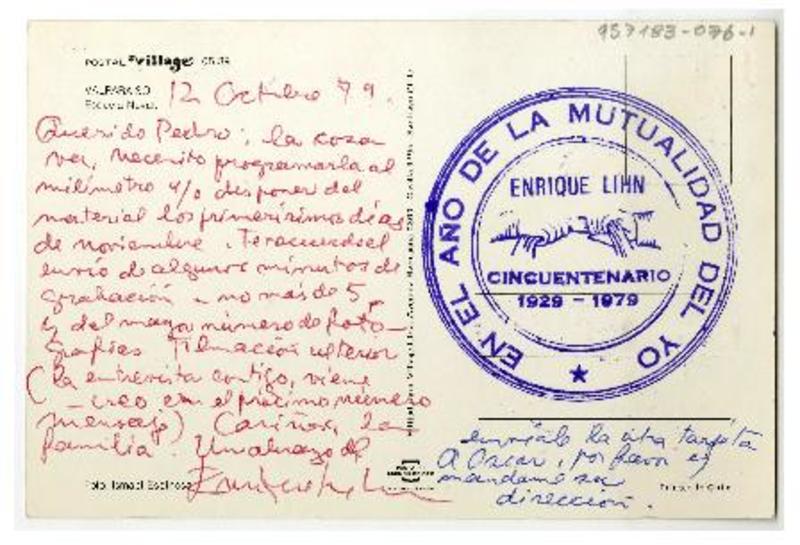 957183-076-1
POSTAL Village
VALPARAISO
12 Octubre 79.
Querido Pedro: la cosa
va, necesito programarla al
milímetro y/o disponer del
material los primerísimos días
de noviembre. Te acuerdas el
envío de algunos minutos de
grabación - no más de 5,
y del mayor número de foto-
grafías filmación ulterior
(la entrevista contigo, viene
- creo en el próximo número
mensaje) Cariños, la
familia. Un abrazo de
Enrique Lihn
Foto: Ismael Espinosa
EN EL AÑO DE LA MUTUALIDAD DEL YO
ENRIQUE LIHN
CINCUENTENARIO
1929 - 1979
envíale la otra tarjeta
A Oscar, por favor y
mandame su
dirección.